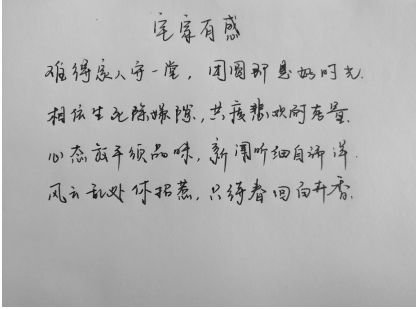 宅家有感
难得家人守一堂，团圆即是好时光.
相依生死除嫌隙，共度悲欢耐思量.
心态放平须品味，新闻听细自端详.
风云乱处休招惹，只待春回百卉香.